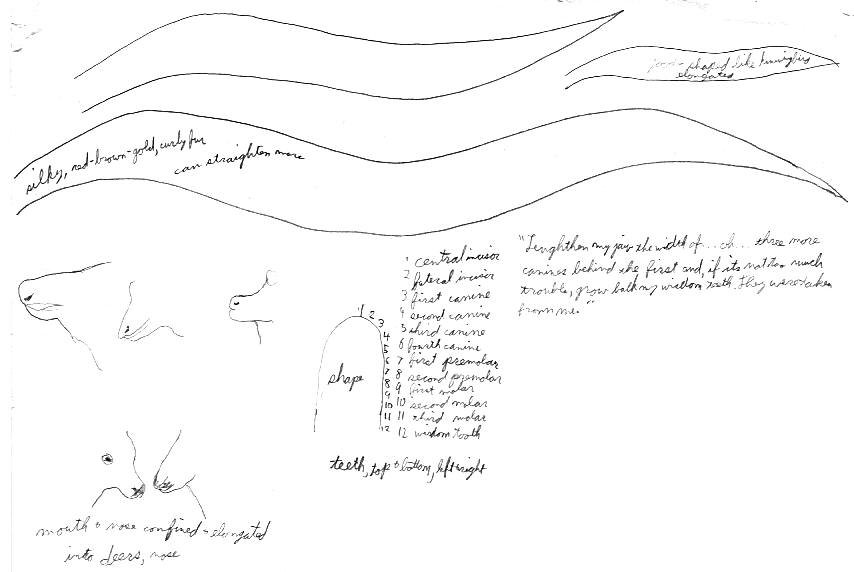 shaped like hummingbird
elongated
silky, red-brown-gold, curly fur
can straighten more
1 central incisor
2 lateral incisor
3 first canine
4 second canine
5 third canine
6 fourth canine
7 first premolar
8 second premolar
9 first molar
10 second molar
11 third molar
12 wisdom tooth
"Lenghthen my jaw the width of... oh... three more
canines behind the first and, if its not too much
trouble, grow back my wisdom teeth. They were taken
from me."
1 2 3
4
5
6
7
8
9
10
11
12
shape
teeth, top & bottom, left & right
mouth & nose confined & elongated
into deers, nose